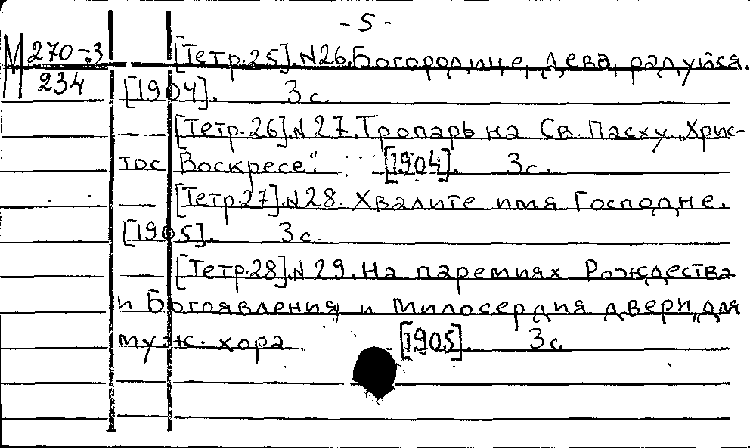 - 5 -
М 270-3 [Тетр.25]. N26. Богородице, Дева, радуйся.
234 [1904]. 3 с.
[Тетр.26]. N27. Тропарь на Св. Пасху „Хрис-
тос Воскресе". [1904]. 3 с.
[Тетр.27]. N28. Хвалите имя Господне.
[1905]. 3 с.
[Тетр.28]. N29. На паремиях Рождества
и Богоявления и Милосердия двери, для
муж. хора [1905]. 3 с.